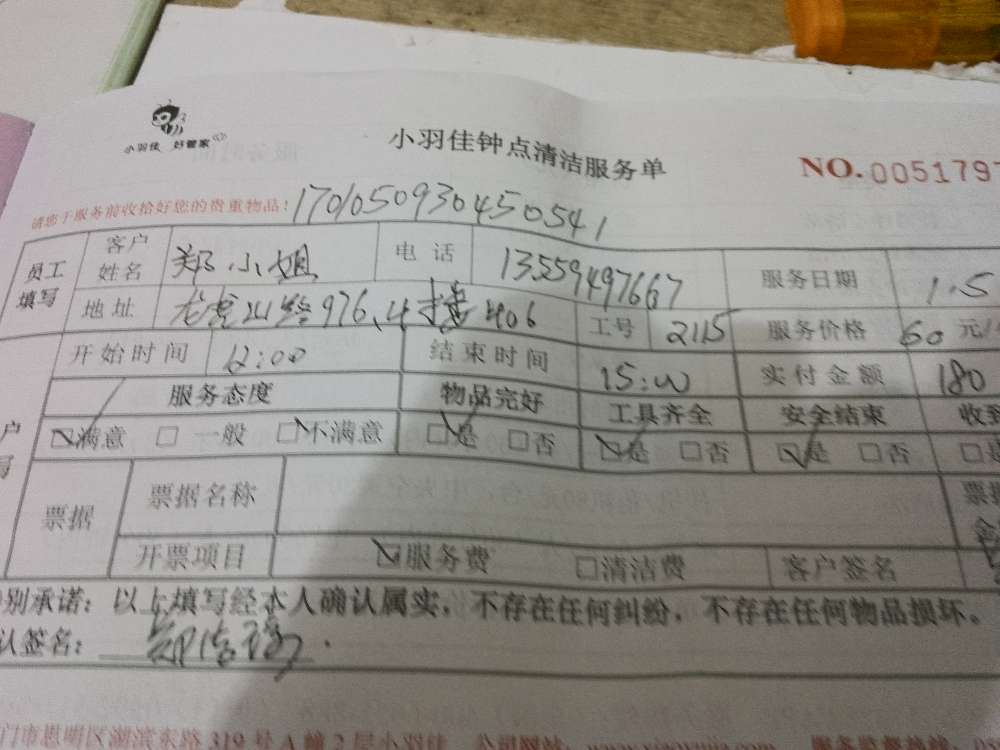 小羽佳 好管家
小羽佳钟点清洁服务单
NO.0051797
请您于服务前收拾好您的贵重物品！1701050930450541
员工填写 客户姓名 郑小姐 电话 13559497667 服务日期 1.5
地址 976 4 楼 406 工号 2115 服务价格 60 元/
开始时间 12:00 结束时间 15:00 实付金额 180
服务态度 物品完好 工具齐全 安全结束 收到
满意 一般 不满意 是 否 是 否 是 否
票据 票据名称
开票项目 服务费 清洁费 客户签名
别承诺：以上填写经本人确认属实，不存在任何纠纷，不存在任何物品损坏。
认签名：
门市思明区湖滨东路 319 号 A 幢 2 层小羽佳 公司网站：